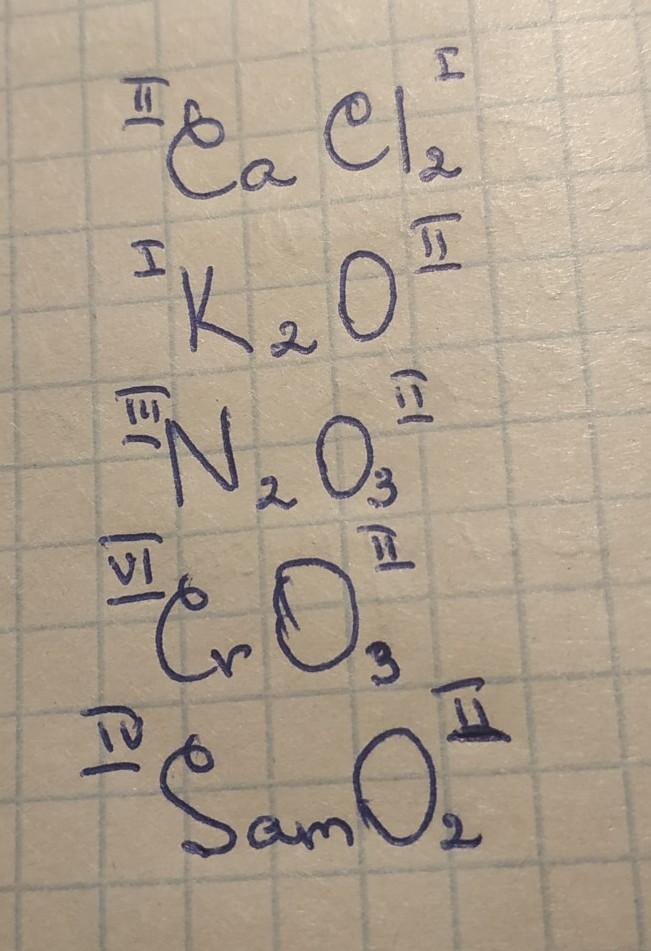 II Ca Cl₂ I
I K₂ O II
III N₂ O₃ II
VI Cr O₃ II
IV Sam O₂ II